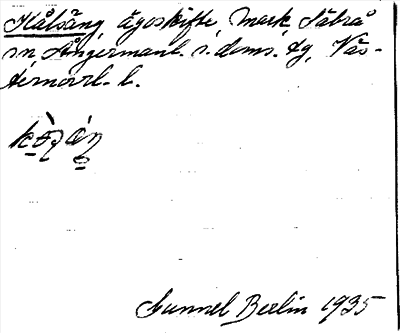 Kålsäng, ägoskifte, Mark, Säbrå
sn Ångermanl. s. doms. tg, Väs-
ternorrl. l.
Gunnel Berlin 1935